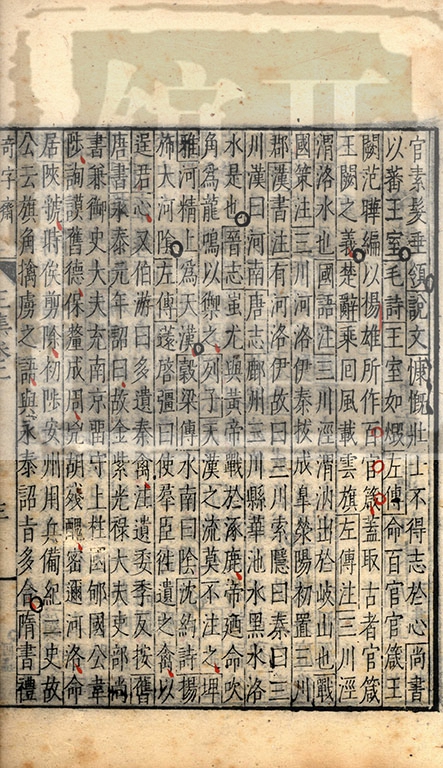 官素髮垂領說文慷慨壯士不得志於心尚書
以蕃王室毛詩王室如燬左傳命百官官箴王
闕范曄編以揚雄所作百官箴蓋取古者官箴
王闕之義楚辭乘回風載雲旗左傳注三川涇
渭洛水也國語注三川涇渭汭出於岐山也戰
國策注三川河洛伊秦拔成臯滎陽初置三川
郡漢書注有河洛伊故曰三川索隱曰秦曰三
川漢曰河南唐志鄜州曰三川縣華池水黑水洛
水是也晉志蚩尤與黃帝戰於涿鹿帝廼命吹
角為龍鳴以禦之列子天漢之流莫不注之埤
雅河精上為天漢穀梁傳水南曰陰沈約詩揚
斾大河陰左傳薳啓彊曰使羣臣徃遺之禽以
逞君心又伯游曰多遺秦禽注遺委季反按舊
唐書永泰元年詔曰故金紫光祿大夫吏部尚
書兼御史大夫充南京留守上柱國郇國公韋
陟詢謨舊德保釐成周克胡殘醜密邇河洛命
居陝虢時俟剪除初陟安州用兵備紀二史故
公云旗角擒虜之語與永泰詔旨多合隋書禮
奇字齋